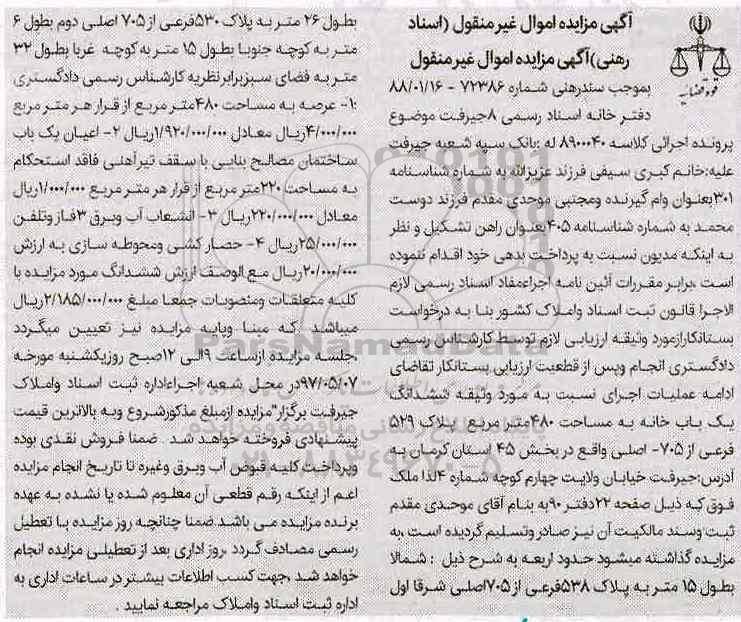 آگهی مزایده اموال غیر منقول (اسناد
رهنی)آگهی مزایده اموال غیر منقول
قوه قضاییه
بموجب سندرهنی شماره ۷۲۳۸۶ - ۸۸/۰۱/۱۶
دفتر خانه اسناد رسمی ۸جیرفت موضوع
پرونده اجرائی کلاسه ۸۹۰۰۰۴۰ له :بانک سپه شعبه جیرفت
علیه:خانم کبری سیفی فرزند عزیزالله به شماره شناسنامه
۳۰۱بعنوان وام گیرنده ومجتبی موحدی مقدم فرزند دوست
محمد به شماره شناسنامه ۴۰۵بعنوان راهن تشکیل و نظر
به اینکه مدیون نسبت به پرداخت بدهی خود اقدام ننموده
است ،برابر مقررات آئین نامه اجراءمفاد اسناد رسمی لازم
الاجرا قانون ثبت اسناد واملاک کشور بنا به درخواست
بستانکارازمورد وثیقه ارزیابی لازم توسط کارشناس رسمی
دادگستری انجام وپس از قطعیت ارزیابی بستانکار تقاضای
ادامه عملیات اجرای نسبت به مورد وثیقه ششدانگ
یک باب خانه به مساحت ۴۸۰متر مربع پلاک ۵۲۹
فرعی از ۷۰۵- اصلی واقع در بخش ۴۵ استان کرمان به
آدرس:جیرفت خیابان ولایت چهارم کوچه شماره ۴لذا ملک
فوق که ذیل صفحه ۲۲دفتر ۹۰به بنام آقای موحدی مقدم
ثبت وسند مالکیت آن نیز صادر وتسلیم گردیده است ،به
مزایده گذاشته میشود حدود اربعه به شرح ذیل : شمالا
بطول ۱۵ متر به پلاک ۵۳۸فرعی از ۷۰۵اصلی شرقا اول
بطول ۲۶ متر به پلاک ۵۳۰فرعی از ۷۰۵ اصلی دوم بطول ۶
متر به کوچه جنوبا بطول ۱۵ متر به کوچه غربا بطول ۳۲
متر به فضای سبزبرابر نظریه کارشناس رسمی دادگستری
:۱- عرصه به مساحت ۴۸۰متر مربع از قرار هر متر مربع
۴/۰۰۰/۰۰۰ریال معادل ۱/۹۲۰/۰۰۰/۰۰۰ریال ۲- اعیان یک باب
ساختمان مصالح بنایی با سقف تیرآهنی فاقد استحکام
به مساحت ۲۲۰متر مربع از قرار هر متر مربع ۱/۰۰۰/۰۰۰ریال
معادل ۲۲۰/۰۰۰/۰۰۰ریال ۳- انشعاب آب وبرق ۳فاز وتلفن
۲۵/۰۰۰/۰۰۰ریال ۴- حصار کشی ومحوطه سازی به ارزش
۲۰/۰۰۰/۰۰۰ریال مع الوصف ارزش ششدانگ مورد مزایده با
کلیه متعلقات ومنصوبات جمعا مبلغ ۲/۱۸۵/۰۰۰/۰۰۰ریال
میباشد .که مبنا وپایه مزایده نیز تعیین میگردد
،جلسه مزایده ازساعت ۹الی ۱۲صبح روزیکشنبه مورخه
۹۷/۰۵/۰۷در محل شعبه اجراءاداره ثبت اسناد واملاک
جیرفت برگزار"مزایده ازمبلغ مذکورشروع وبه بالاترین قیمت
پیشنهادی فروخته خواهد شد . ضمنا فروش نقدی بوده
وپرداخت کلیه قبوض آب وبرق وغیره تا تاریخ انجام مزایده
اعم از اینکه رقم قطعی آن معلوم شده یا نشده به عهده
برنده مزایده می باشد.ضمنا چنانچه روز مزایده با تعطیل
رسمی مصادف گردد ،روز اداری بعد از تعطیلی مزایده انجام
خواهد شد ،جهت کسب اطلاعات بیشتر در ساعات اداری به
اداره ثبت اسناد واملاک مراجعه نمایید .
ParsNamadData